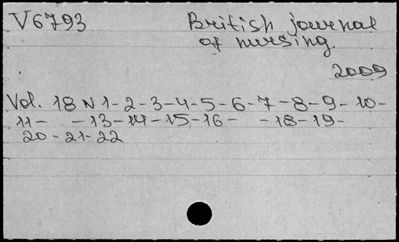 V6793
British journal
of nursing.
2009
Vol. 18 N 1-2-3-4-5-6-7-8-9-10-
11- -13-14-15-16- -18-19-
20-21-22